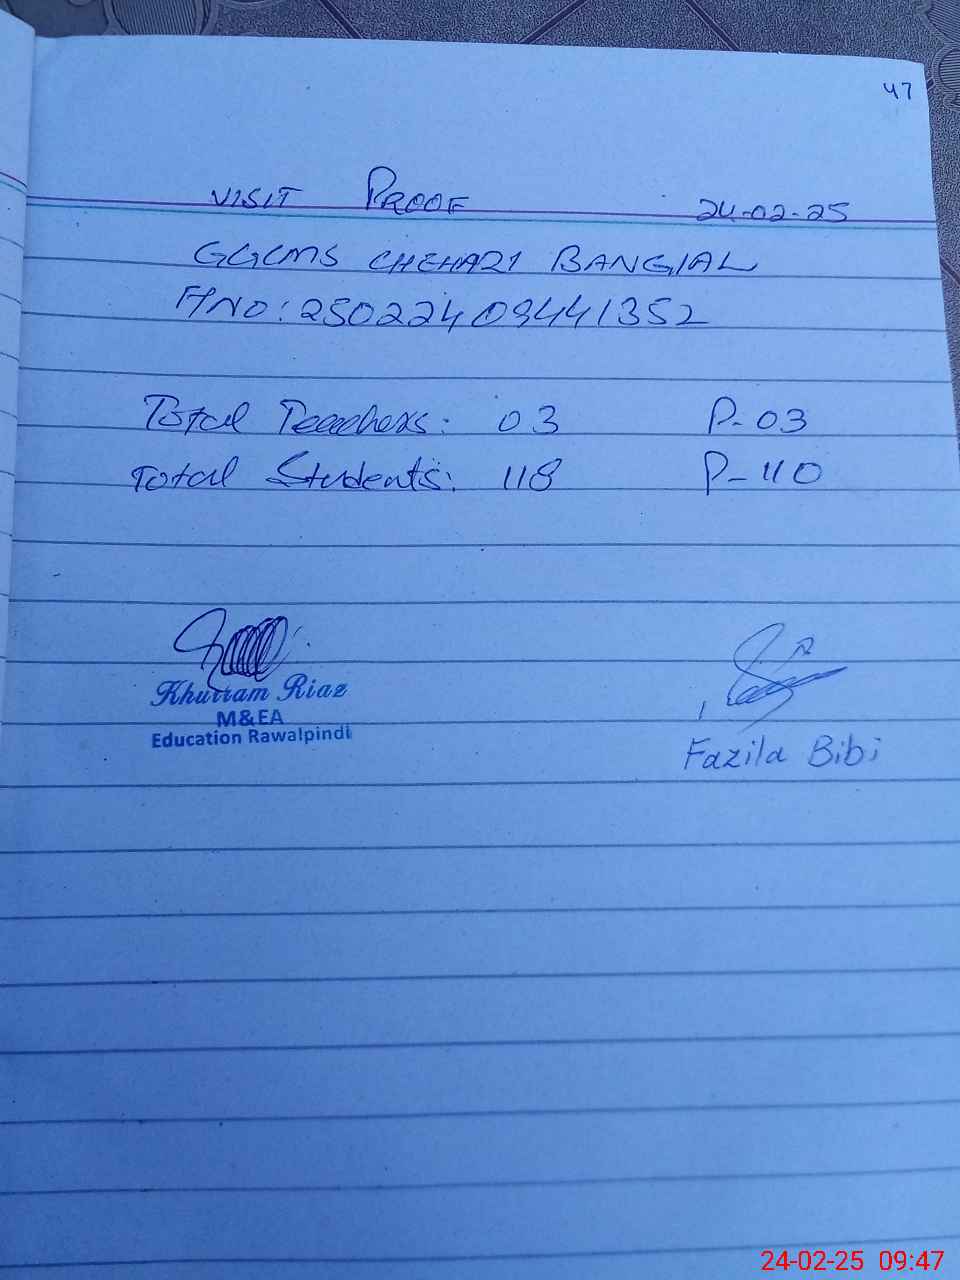 47
VISIT PROOF 24-02-25
GGCMS CHEHARI BANGIAL
HNO: 25022409441352
Total Teachers: 03 P-03
Total Students: 118 P-110
Khurram Riaz
M&EA
Education Rawalpindi
Fazila Bibi
24-02-25 09:47